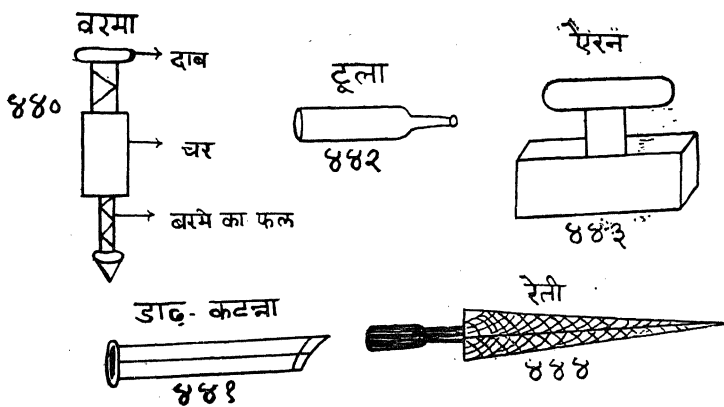 वरमा
दाब
४४०
चर
बरमे का फल
टूला
४४२
ऐरन
४४३
डाढ़ - कटन्ना
४४१
रेती
४४४